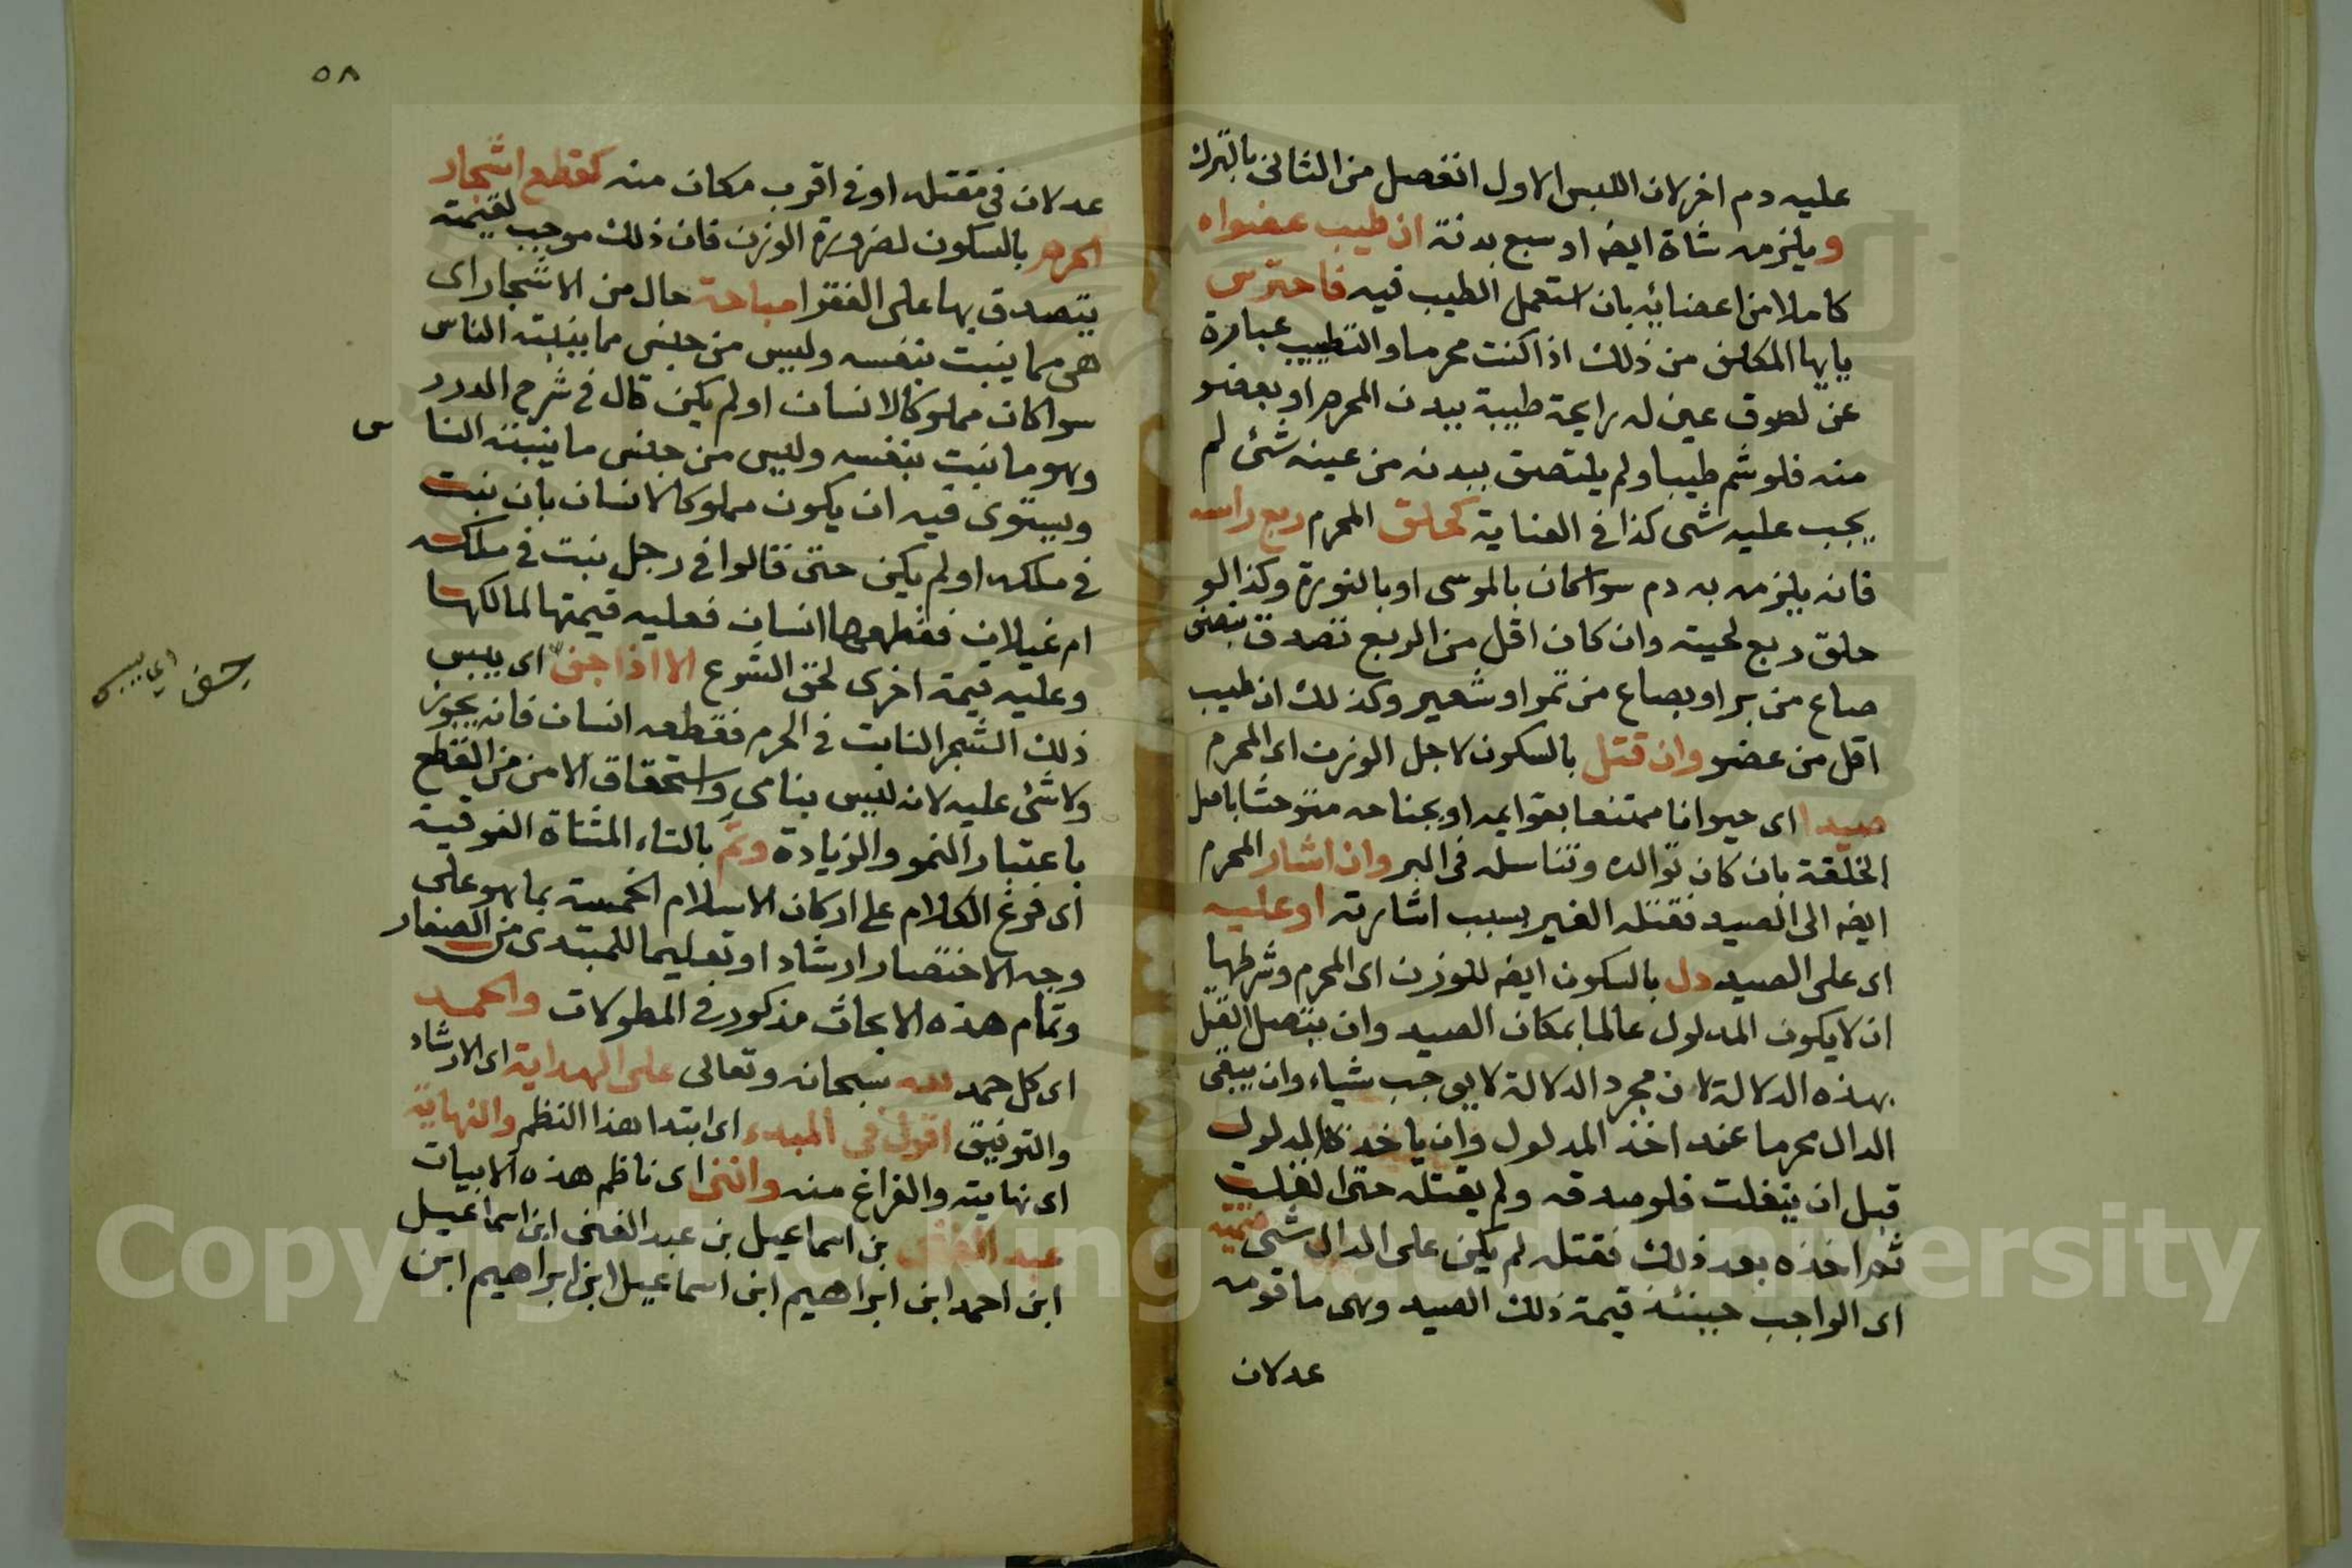 عليه دم اخر لان اللبس الاول انفصل من الثانى بالترك
ويلزمه شاة ايضه او سبع بدنة ان طيب عضواه
كاملا من اعضائه بان استعمل الطيب فيه فاحترس
يايها المكلف من ذلك اذا كنت محرما والتطييب عبارة
عن لصوق عين له رايحة طيبة ببدن المحرم او بعضو
منه فلو شم طيبا ولم يلتصق ببدنه من عينه شئ لم
يجب عليه شى كذا فى العناية كحلق المحرم ربع راسه
فانه يلزمه به دم سوا كان بالموسى او بالنورة وكذا لو
حلق ربع لحيته وان كان اقل من الربع تصدق بنصف
صاع من بر او بصاع من تمر او شعير وكذلك ان طيب
اقل من عضو وان قتل بالسكون لاجل الوزن اى المحرم
صيدا اى حيوانا ممتنعا بقوايمه او بجناحه متوحشا باصل
الخلقة بان كان توالده وتناسله فى البر وان اشار المحرم
ايضه الى الصيد فقتله الغير بسبب اشارته او عليه
اى على الصيد دل بالسكون ايضه للوزن اى المحرم وشرطها
ان لا يكون المدلول عالما بمكان الصيد وان يتصل القتل
بهذه الدلالة لان مجرد الدلالة لا يوجب شياء وان يبقى
الدال محرما عند اخذ المدلول وان ياخذه المدلول
قبل ان ينفلت فلو صدقه ولم يقتله حتى انفلت
ثم اخذه بعد ذلك فقتله لم يكن على الدال شى قيمته
اى الواجب حينئذ قيمة ذلك الصيد وهى ما قومه
عدلان
٥٨
عدلان فى مقتله او فى اقرب مكان منه كقطع اشجار
الحرم بالسكون لضرورة الوزن فان ذلك موجب لقيمته
يتصدق بها على الفقرا مباحة حال من الاشجار اى
هى مما ينبت بنفسه وليس من جنس مما ينبته الناس
سوا كان مملوكا لانسان او لم يكن قال فى شرح الدرر
وهو ما نبت بنفسه وليس من جنس ما ينبته الناس
ويستوى فيه ان يكون مملوكا لانسان بان نبت
فى ملكه او لم يكن حتى قالوا فى رجل نبت فى ملكه
ام غيلان فقطعها انسان فعليه قيمتها لمالكها
وعليه قيمة اخرى لحق الشرع الا اذا جف اى يبس
جف اى يبس
ذلك الشجر النابت فى الحرم فقطعه انسان فانه يجوز
ولا شئ عليه لانه ليس بنامى واستحقاق الامن من القطع
باعتبار النمو والزيادة وتم بالتاء المثناة الفوقية
اى فرغ الكلام على اركان الاسلام الخمسة بما هو على
وجه الاختصار ارشادا وتعليما للمبتدى من الصغار
وتمام هذه الابحاث مذكور فى المطولات والحمد
اى كل حمد لله سبحانه وتعالى على الهداية اى الارشاد
والتوفيق اقول فى المبدء اى ابتدا هذا النظم والنهاية
اى نهايته والفراغ منه واننى اى ناظم هذه الابيات
عبد الغنى بن اسماعيل بن عبد الغنى ابن اسماعيل
ابن احمد ابن ابراهيم ابن اسماعيل ابن ابراهيم ابن
Copyright © King Saud University